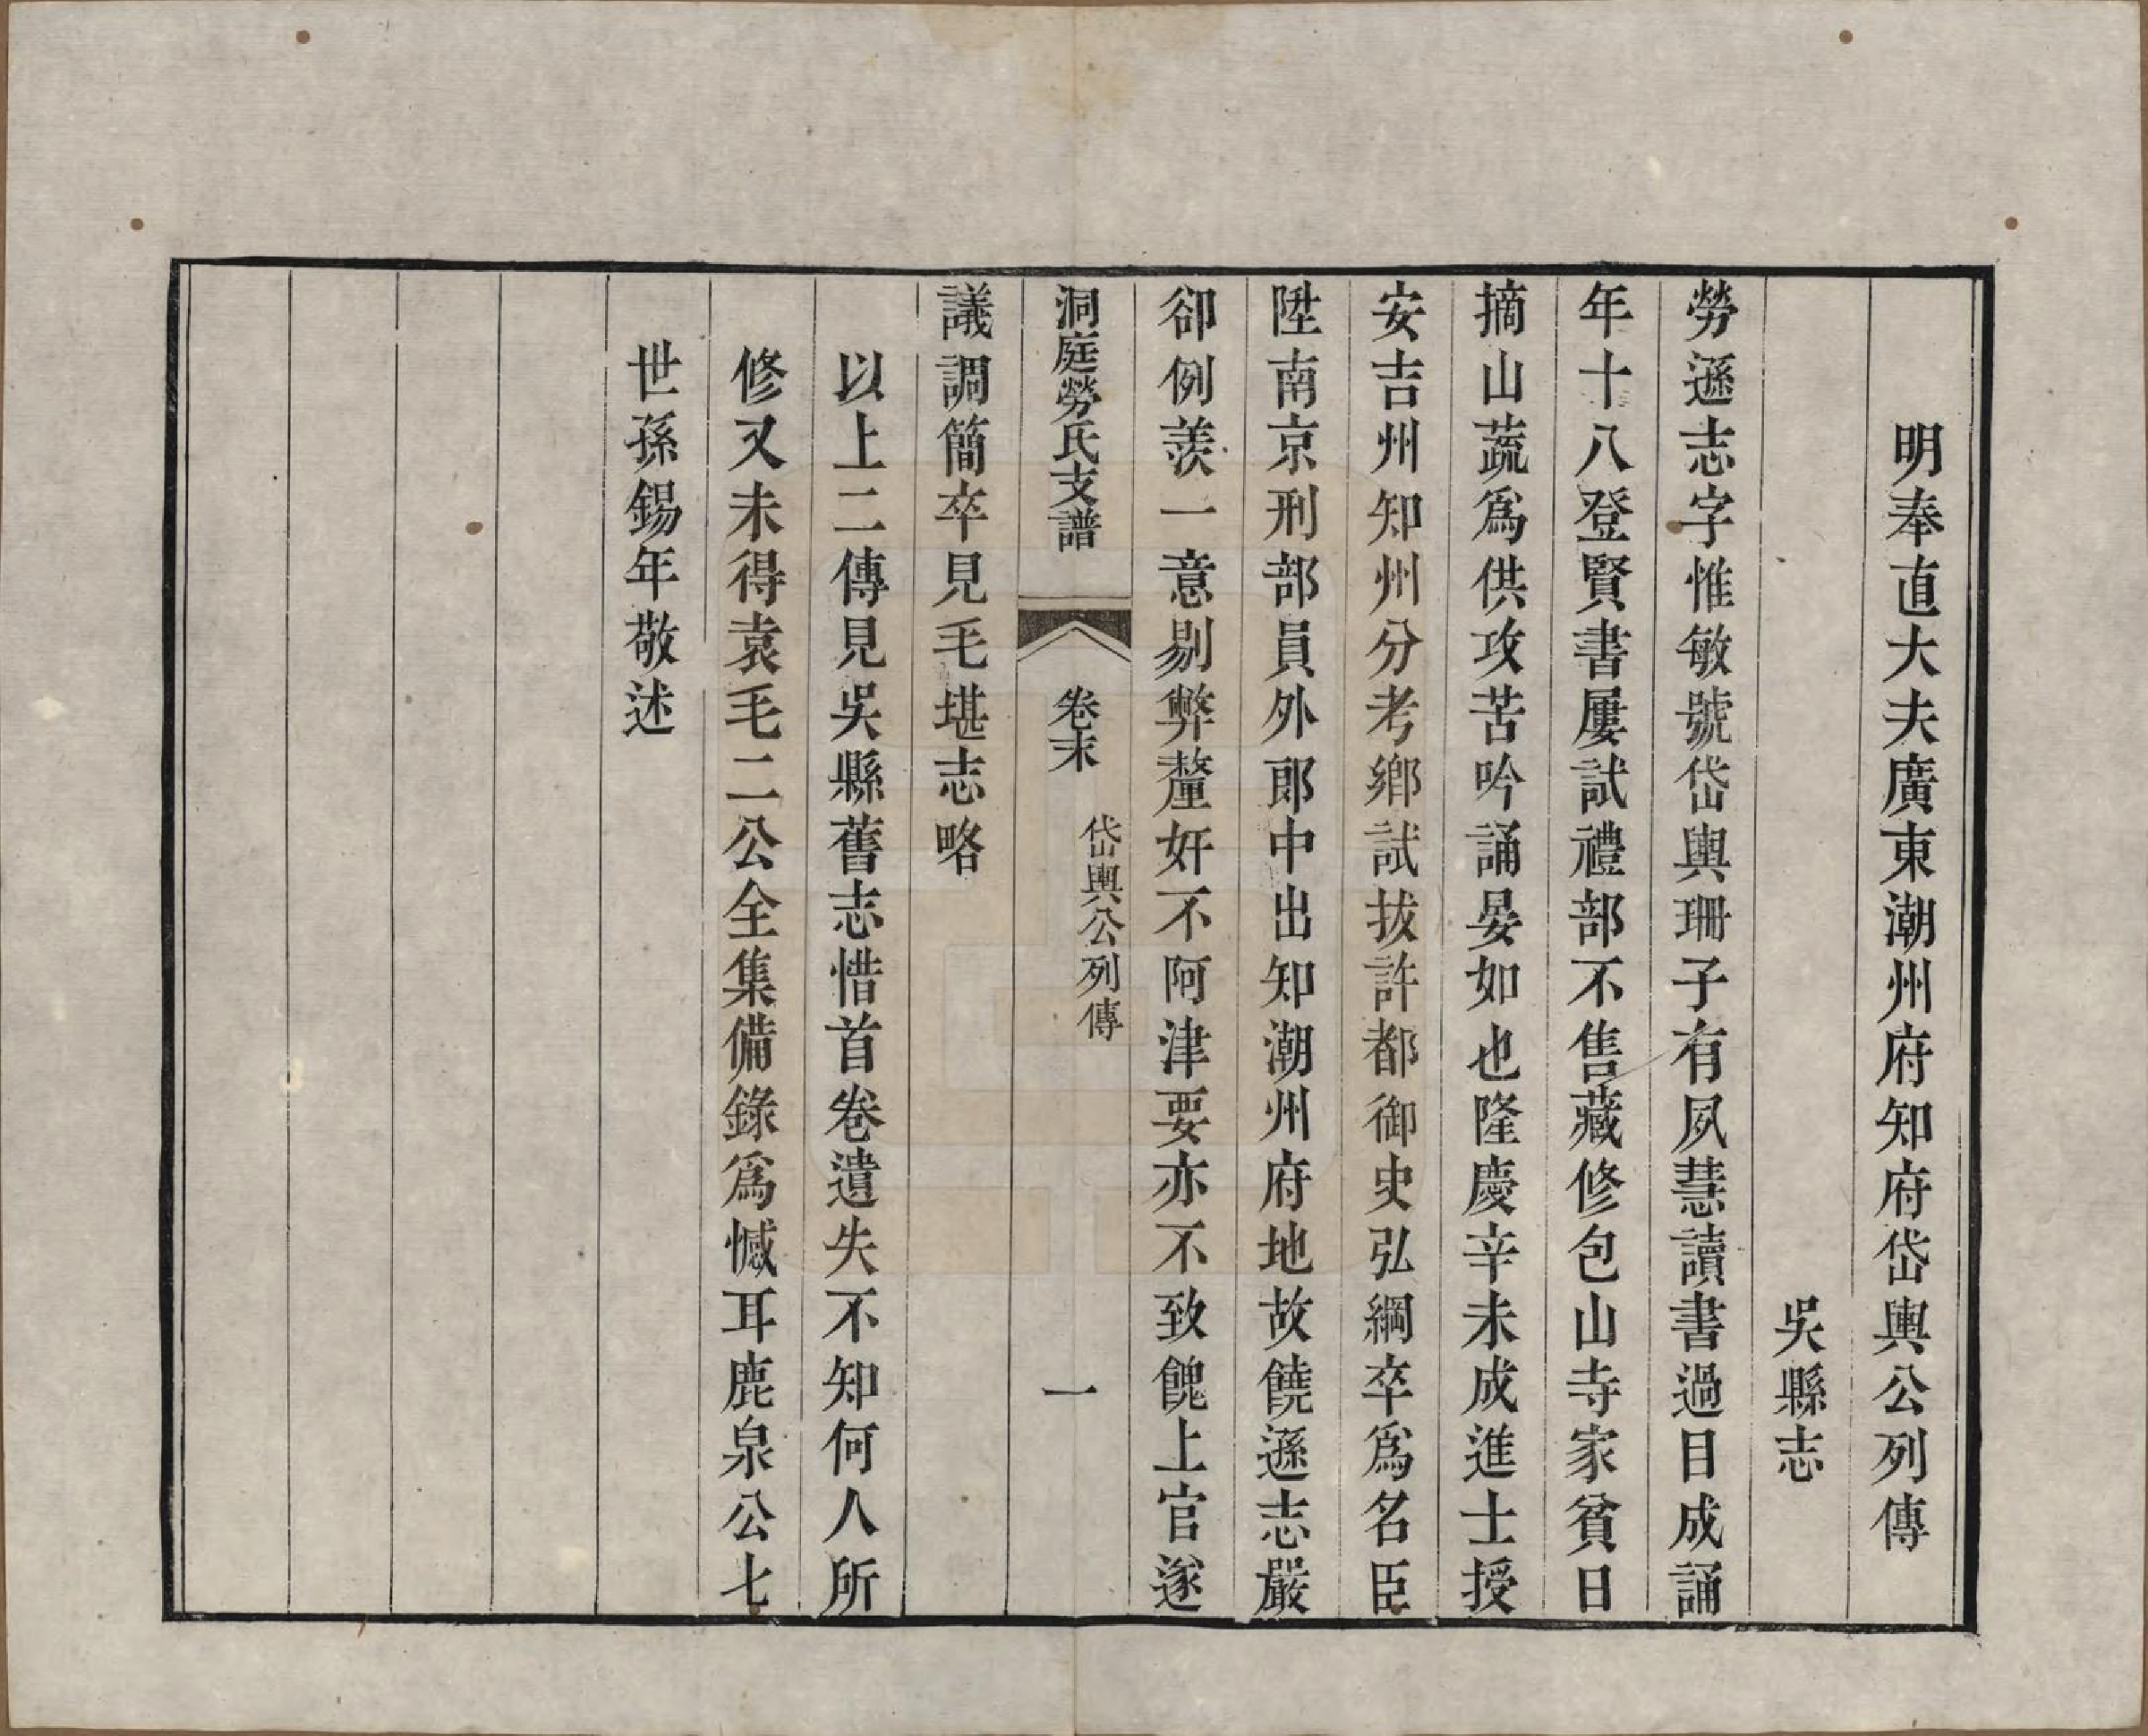 明奉直大夫廣東潮州府知府岱輿公列傳
吳縣志
勞遜志字惟敏號岱輿珊子有夙慧讀書過目成誦
年十八登賢書屢試禮部不售藏修包山寺家貧日
摘山蔬爲供攻苦吟誦晏如也隆慶辛未成進士授
安吉州知州分考鄉試拔許都御史弘綱卒爲名臣
陞南京刑部員外郎中出知潮州府地故饒遜志嚴
卻例羨一意剔弊釐奸不阿津要亦不致餽上官遂
洞庭勞氏支譜
卷末
岱輿公列傳
一
議調簡卒見毛堪志略
以上二傳見吳縣舊志惜首卷遺失不知何人所
修又未得袁毛二公全集備錄爲憾耳鹿泉公七
世孫錫年敬述